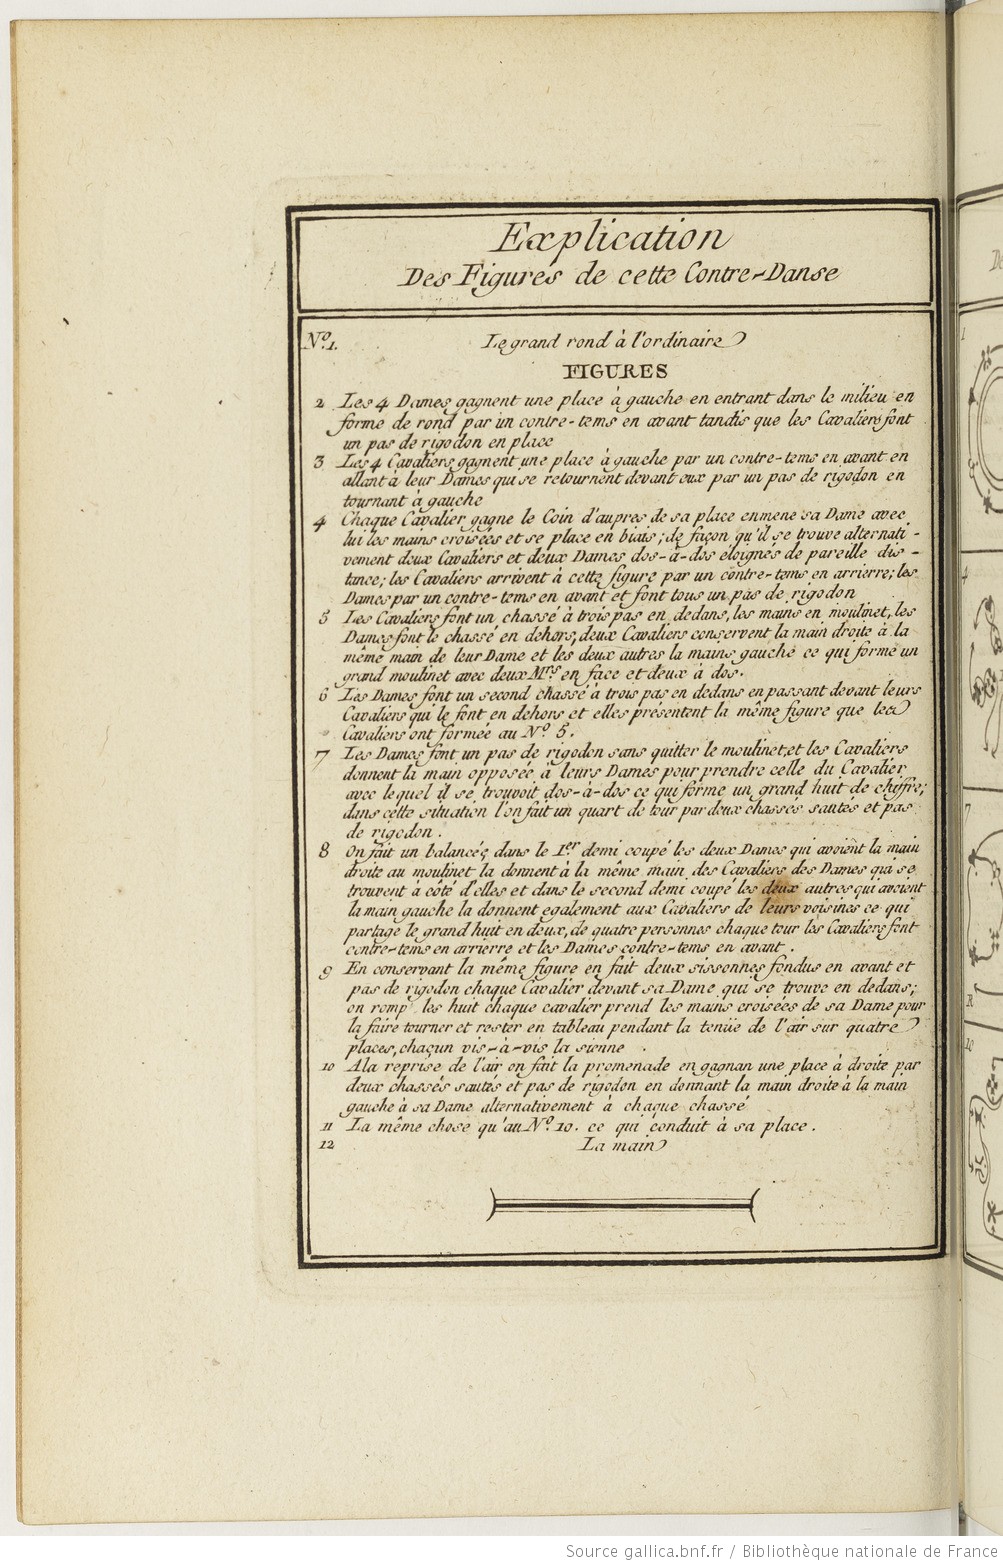 Explication
Des Figures de cette Contre-Danse
N.º 1. Le grand rond à l'ordinaire
FIGURES
2 Les 4 Dames gagnent une place à gauche en entrant dans le milieu en
forme de rond par un contre-tems en avant tandis que les Cavaliers font
un pas de rigodon en place
3 Les 4 Cavaliers gagnent une place à gauche par un contre-tems en avant en
allant à leur Dames qui se retournent devant eux par un pas de rigodon en
tournant à gauche
4 Chaque Cavalier gagne le Coin d'aupres de sa place enmene sa Dame avec
lui les mains croisées et se place en biais; de façon qu'il se trouve alternati-
vement deux Cavaliers et deux Dames dos-à-dos eloignés de pareille dis-
tance; les Cavaliers arrivent à cette figure par un contre-tems en arriere; les
Dames par un contre-tems en avant et font tous un pas de rigodon
5 Les Cavaliers font un chassé à trois pas en dedans, les mains en moulinet, les
Dames font le chassé en dehors, deux Cavaliers conservent la main droite à la
même main de leur Dame et les deux autres la mains gauche ce qui forme un
grand moulinet avec deux M.rs en face et deux à dos.
6 Les Dames font un second chassé à trois pas en dedans en passant devant leurs
Cavaliers qui le font en dehors et elles présentent la même figure que les
Cavaliers ont formée au N.º 5.
7 Les Dames font un pas de rigodon sans quitter le moulinet, et les Cavaliers
donnent la main opposée à leurs Dames pour prendre celle du Cavalier
avec lequel il se trouvoit dos-à-dos ce qui forme un grand huit de chiffre;
dans cette situation l'on fait un quart de tour par deux chassés sautés et pas
de rigodon.
8 On fait un balancé; dans le 1.er demi coupé les deux Dames qui avoient la main
droite au moulinet la donnent à la même main des Cavaliers des Dames qui se
trouvent à côté d'elles et dans le second demi coupé les deux autres qui avoient
la main gauche la donnent egalement aux Cavaliers de leurs voisines ce qui
partage le grand huit en deux, de quatre personnes chaque tour les Cavaliers font
contre-tems en arrierre et les Dames contre-tems en avant.
9 En conservant la même figure en fait deux sissonnes fondus en avant et
pas de rigodon chaque Cavalier devant sa Dame qui se trouve en dedans;
on romp les huit chaque cavalier prend les mains croisées de sa Dame pour
la faire tourner et rester en tableau pendant la tenüe de l'air sur quatre
places, chaçun vis-à-vis la sienne.
10 A la reprise de l'air on fait la promenade en gagnan une place à droite par
deux chassés sautés et pas de rigodon en donnant la main droite à la main
gauche à sa Dame alternativement à chaque chassé
11 La même chose qu'au N.º 10. ce qui conduit à sa place.
12 La main
1
4
7
R
10
Source gallica.bnf.fr / Bibliothèque nationale de France